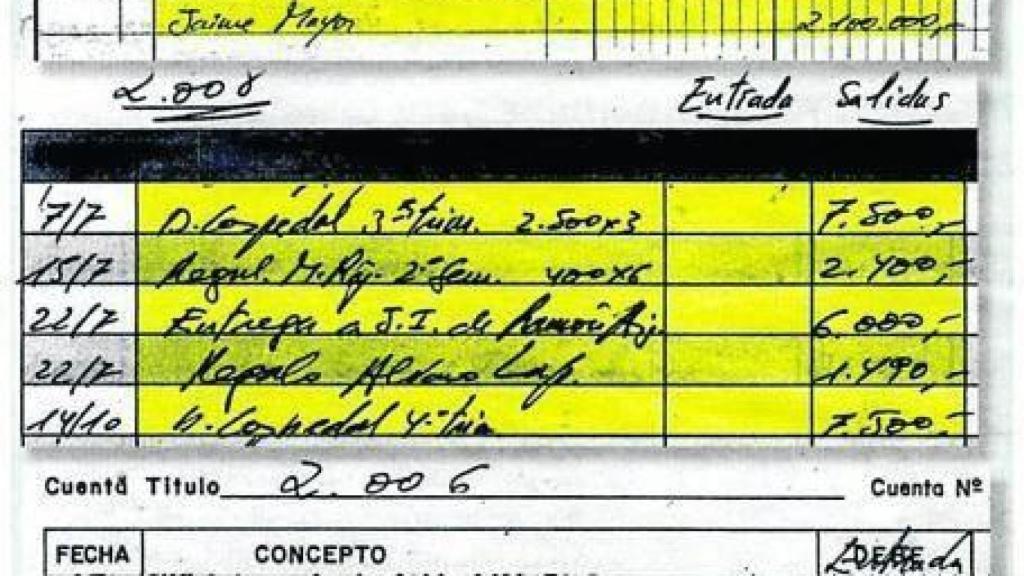 Jaime Mayor 2.100.000,-
2.008 Entrada Salidas
7/7 D. Cospedal 3º trim. 2.500x3 7.500,-
15/7 Regul. M. Rjy. 2º Sem. 400x6 2.400,-
22/7 Entrega a J.I. de 6.000,-
22/7 Regalo Alvaro Lap. 1.490,-
14/10 D. Cospedal 4º trim 7.500,-
Cuenta Título 2.006 Cuenta Nº
FECHA CONCEPTO DEBE Entrada